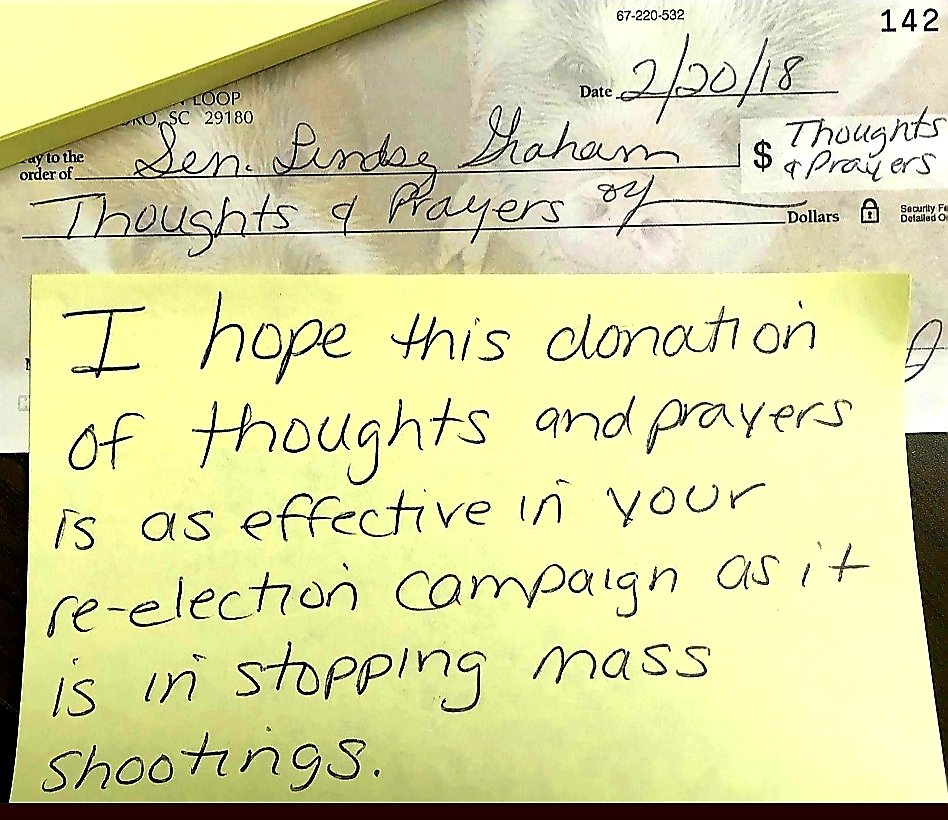 67-220-532
142
Date 2/20/18
LOOP
SC 29180
Pay to the
order of Sen. Lindsey Graham $ Thoughts
& Prayers
Thoughts & Prayers Dollars
Security
Detailed
I hope this donation
of thoughts and prayers
is as effective in your
re-election campaign as it
is in stopping mass
shootings.